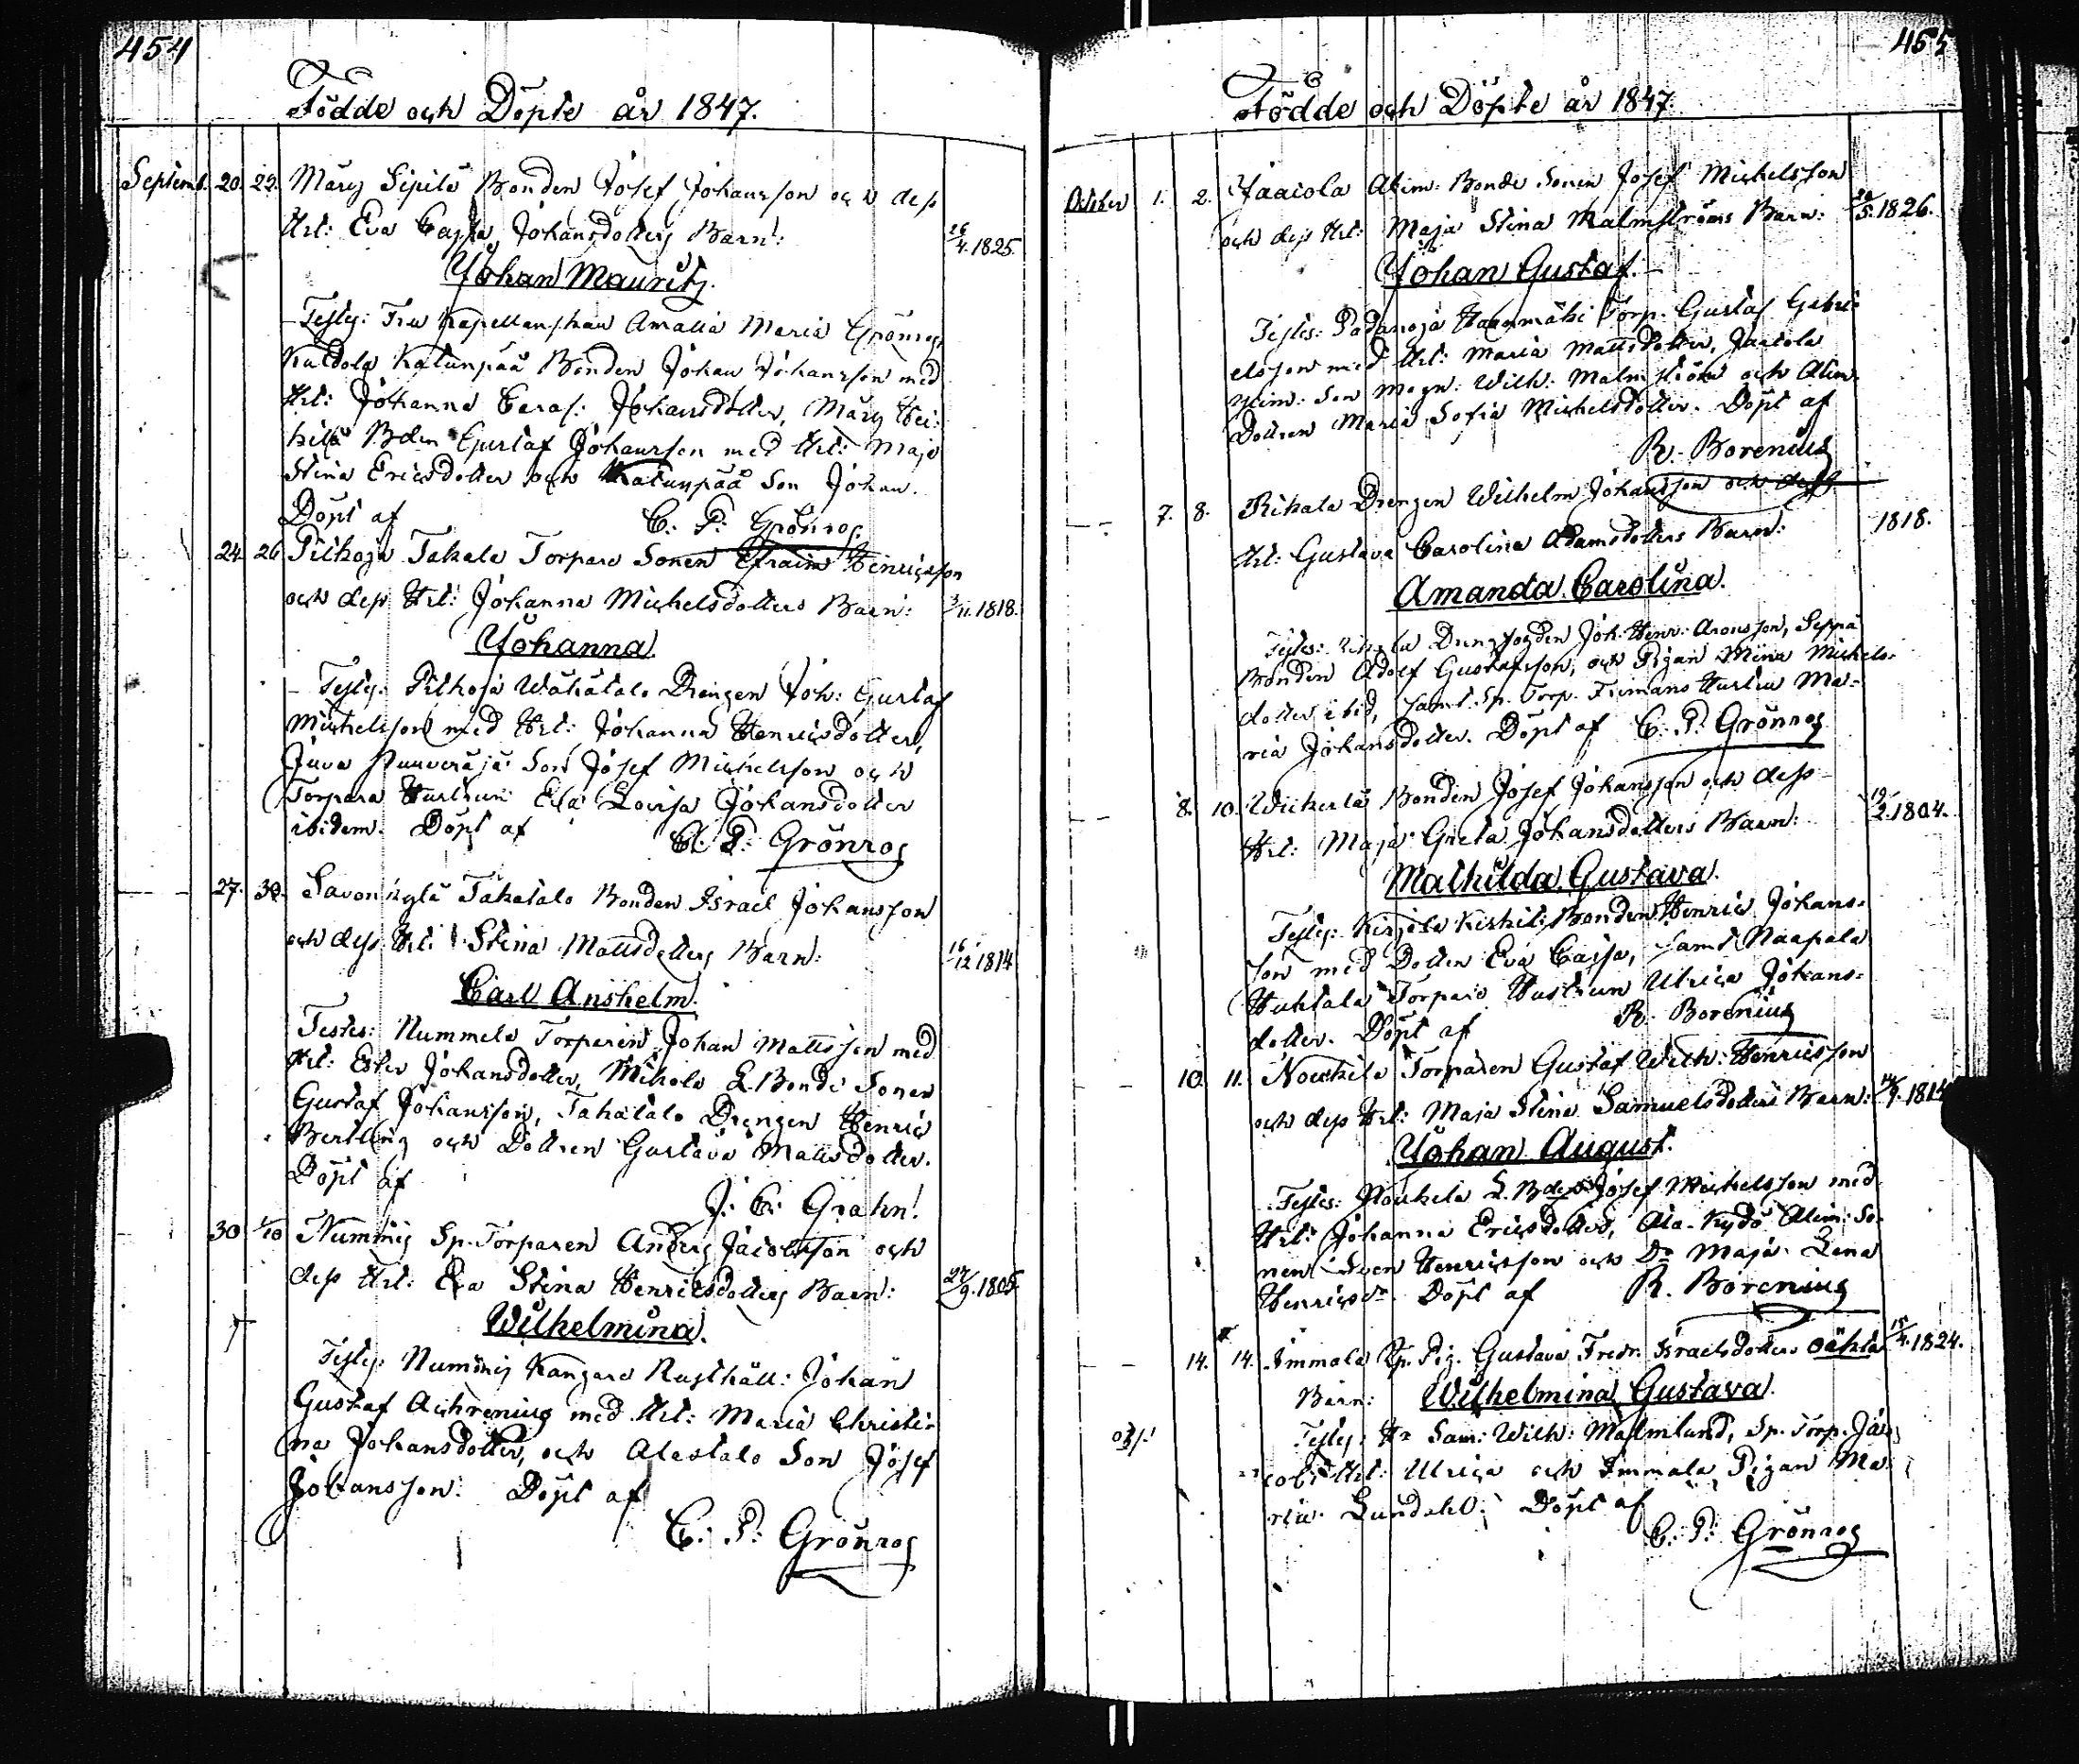 454
Födde och Döpte år 1847.
Septemb. 20. 22. Märy Sipilä Bonden Josef Johansson och dess
Hst: Eva Cajsa Johansdotters Barn: 16/4. 1825.
Johan Mauritz.
Testes: Fru Kapellanskan Amalia Maria Grönros,
Katunpää Bonden Johan Johansson med
Hst: Johanna Carol: Johansdotter, Märy Hei-
kilä Bden Gustaf Johansson med Hst: Maja
Stina Ericsdotter och Katunpää Son Johan.
Döpt af C: P: Grönros.
24. 26. Pilhoja Takala Torpare Sonen Efraim Henricsson
och dess Hst: Johanna Michelsdotters Barn: 3/11. 1818.
Johanna.
Testes: Pilhoja Wähätalo Drengen Joh: Gustaf
Michelsson med Hst: Johanna Henricsdotter,
Juva Son Josef Michelsson och
Torpare Hustrun Eva Lovisa Johansdotter
ibidem. Döpt af C. P: Grönros
27. 30. Savonkylä Takatalo Bonden Israel Johansson
och dess Hst: Stina Mattsdotters Barn: 16/12 1814
Carl Anshelm.
Testes: Nummela Torparen Johan Mattsson med
Hst: Ester Johansdotter, Mikola L. Bonde Sonen
Gustaf Johansson, Takatalo Drengen Henric
Bertling och Dottren Gustava Mattsdotter.
Döpt af
J: C: Grahn.
30 1/10 Nummis Sp. Torparen Anders Jacobsson och
dess Hst: Eva Stina Henricsdotters Barn: 27/9. 1805.
Wilhelmina.
Testes: Nummis Kangare Rusthåll: Johan
Gustaf Achrenius med Hst: Maria Christi-
na Johansdotter, och Alastalo Son Josef
Johansson. Döpt af
C: P: Grönros
455
Födde och Döpte år 1847.
October 1. 2. Jaacola Atim: Bonde Sonen Josef Michelsson
och dess Hst: Maja Stina Malmströms Barn: /5. 1826.
Johan Gustaf.
Testes: Padanoja Torp. Gustaf Gabri-
elsson med Hst: Maria Mattsdotter, Jaacola
Son Magn: Wilh: Malmström och Atim.
Dottren Maria Sofia Michelsdotter. Döpt af
R. Borenius
7. 8. Rikala Drengen Wilhelm Johansson och dess
Hst: Gustava Carolina Adamsdotters Barn: 1818.
Amanda Carolina.
Testes: Drengfogden Joh. Henr: Aronsson, Seppä
Bonden Adolf Gustafsson, och Pigan Mina Michels-
dotter ibid, samt Sp. Torp. Hustru Ma-
ria Johansdotter. Döpt af C: P: Grönros
8. 10. Wiikerlä Bonden Josef Johansson och dess
Hst: Maja Greta Johansdotters Barn: 19/2. 1804.
Mathilda Gustava.
Testes: Kirjola Bonden Henric Johans-
son med Dottren Eva Cajsa, samt Naapala
Huhtala Torpare Hustrun Ulrica Johans-
dotter. Döpt af R. Borenius
10. 11. Noukila Torparen Gustaf Wilh: Henricsson
och dess Hst: Maja Stina Samuelsdotters Barn: 1814
Johan August.
Testes: Noukila L. Bden Josef Michelsson med
Hst: Johanna Ericsdotter, Ala-Kydö Atim: So-
nen Sven Henricsson och Dr Maja Lena
Henricsdr. Döpt af R. Borenius
14. 14. Immala Sp. Pig. Gustava Fredr: Israelsdotters oäkta 15/4. 1824.
Barn: Wilhelmina Gustava.
Testes: Hr Sam: Wilh: Malmlund, Sp. Torp. Ja-
cobs Hst: Ulrica och Immala Pigan Ma-
ria Lundahl. Döpt af
C: P: Grönros